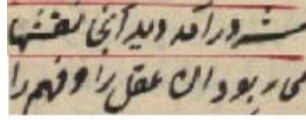 شد درآمد دید آنجا نقشها
می ربود آن عقل را و فهم را